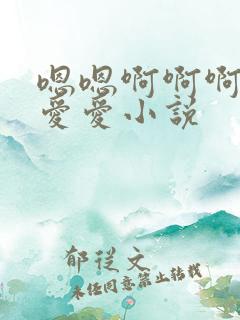 嗯嗯啊啊啊
爱爱小说
郁従文
未经同意禁止转载